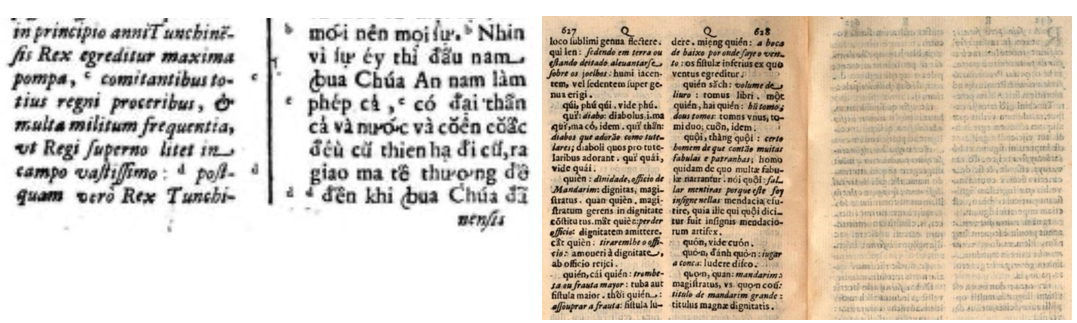 in principio anni Tunchinẽ-
sis Rex egreditur maxima
pompa, c comitantibus to-
tius regni proceribus, &
multa militum frequentia,
vt Regi superno litet in
campo vastissimo : d post-
quam verò Rex Tunchi-
b mới nên mọi sự. b Nhin
vì sự ếy thì đầu nam
ꞗua Chúa An nam làm
c phép cả , c có đại thần
cả và nước và coên coâc
đều cũ thien hạ đi cũ, ra
giao ma tế thượng đế
d đến khi ꞗua Chúa đã
nensis
617 Q
loco sublimi genua flectere.
qùi len : sedendo em terra ou
estando deitado aleuantarse
sobre os joelhos : humi iacen-
tem, vel sedentem super ge-
nua erigi.
quí, phú quí. vide phú.
quỉ: diabo: diabolus i. ma
quỉ, ma có, idem. quỉ thần:
diabos que adorão como tute-
lares; diaboli quos pro tute-
laribus adorant. quỉ quái,
vide quái.
quièn : dinidade, officio de
Mandarim: dignitas, magi-
stratus. quan quièn, magi-
stratum gerens in dignitate
cõstitutus. mất quièn: perder
officio: dignitatem amittere.
cất quièn : tiraremlhe o offi-
cio : amoueri à dignitate,
ab officio reijci.
quiẻn, cái quiẻn : trombe-
ta ou frauta mayor : tuba aut
fistula maior. thỏi quiẻn :
assouprar a frauta: fistula lu-
Q 618
dere. miẹng quiẻn: a boca
de baixo por onde saye o ven-
to : os fistulæ inferius ex quo
ventus egreditur.
quiẻn sách : volume de
liuro : tomus libri. một
quiẻn, hai quiẻn : hũ tomo,
dous tomos: tomus vnus, to-
mi duo; cuôn, idem.
quội, thàng quội : certo
homem de que contão muitas
fabulas e patranhas; homo
quidam de quo multæ fabu-
læ narrantur. nói quội : fal-
lar mentiras porque este foy
insigne nellas mendacia effu-
tire, quia ille qui quội dici-
tur fuit insignis mendacio-
rum artifex.
quôn, vide cuôn.
quơn, đánh quơn : iugar
a conca: ludere disco.
quơn, quan: mandarim :
magistratus, vs. quơn coũ:
titulo de mandarim grande :
titulus magnæ dignitatis.